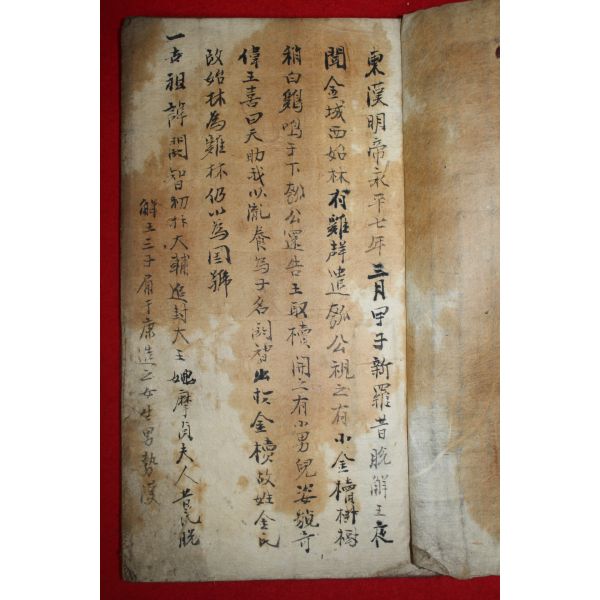 東漢明帝永平七年三月甲子新羅昔脫解王夜
聞金城西始林有雞聲遣瓠公視之有小金櫝掛樹
稍白鷄鳴于下瓠公還告王取櫝開之有小男兒姿貌奇
偉王喜曰天助我以胤養爲子名閼智出於金櫝故姓金氏
改始林為雞林仍以為國號
一世祖諱閼智初拜大輔追封大王 摩貞夫人昔氏脫
解王三子 于康造之女生男勢漢